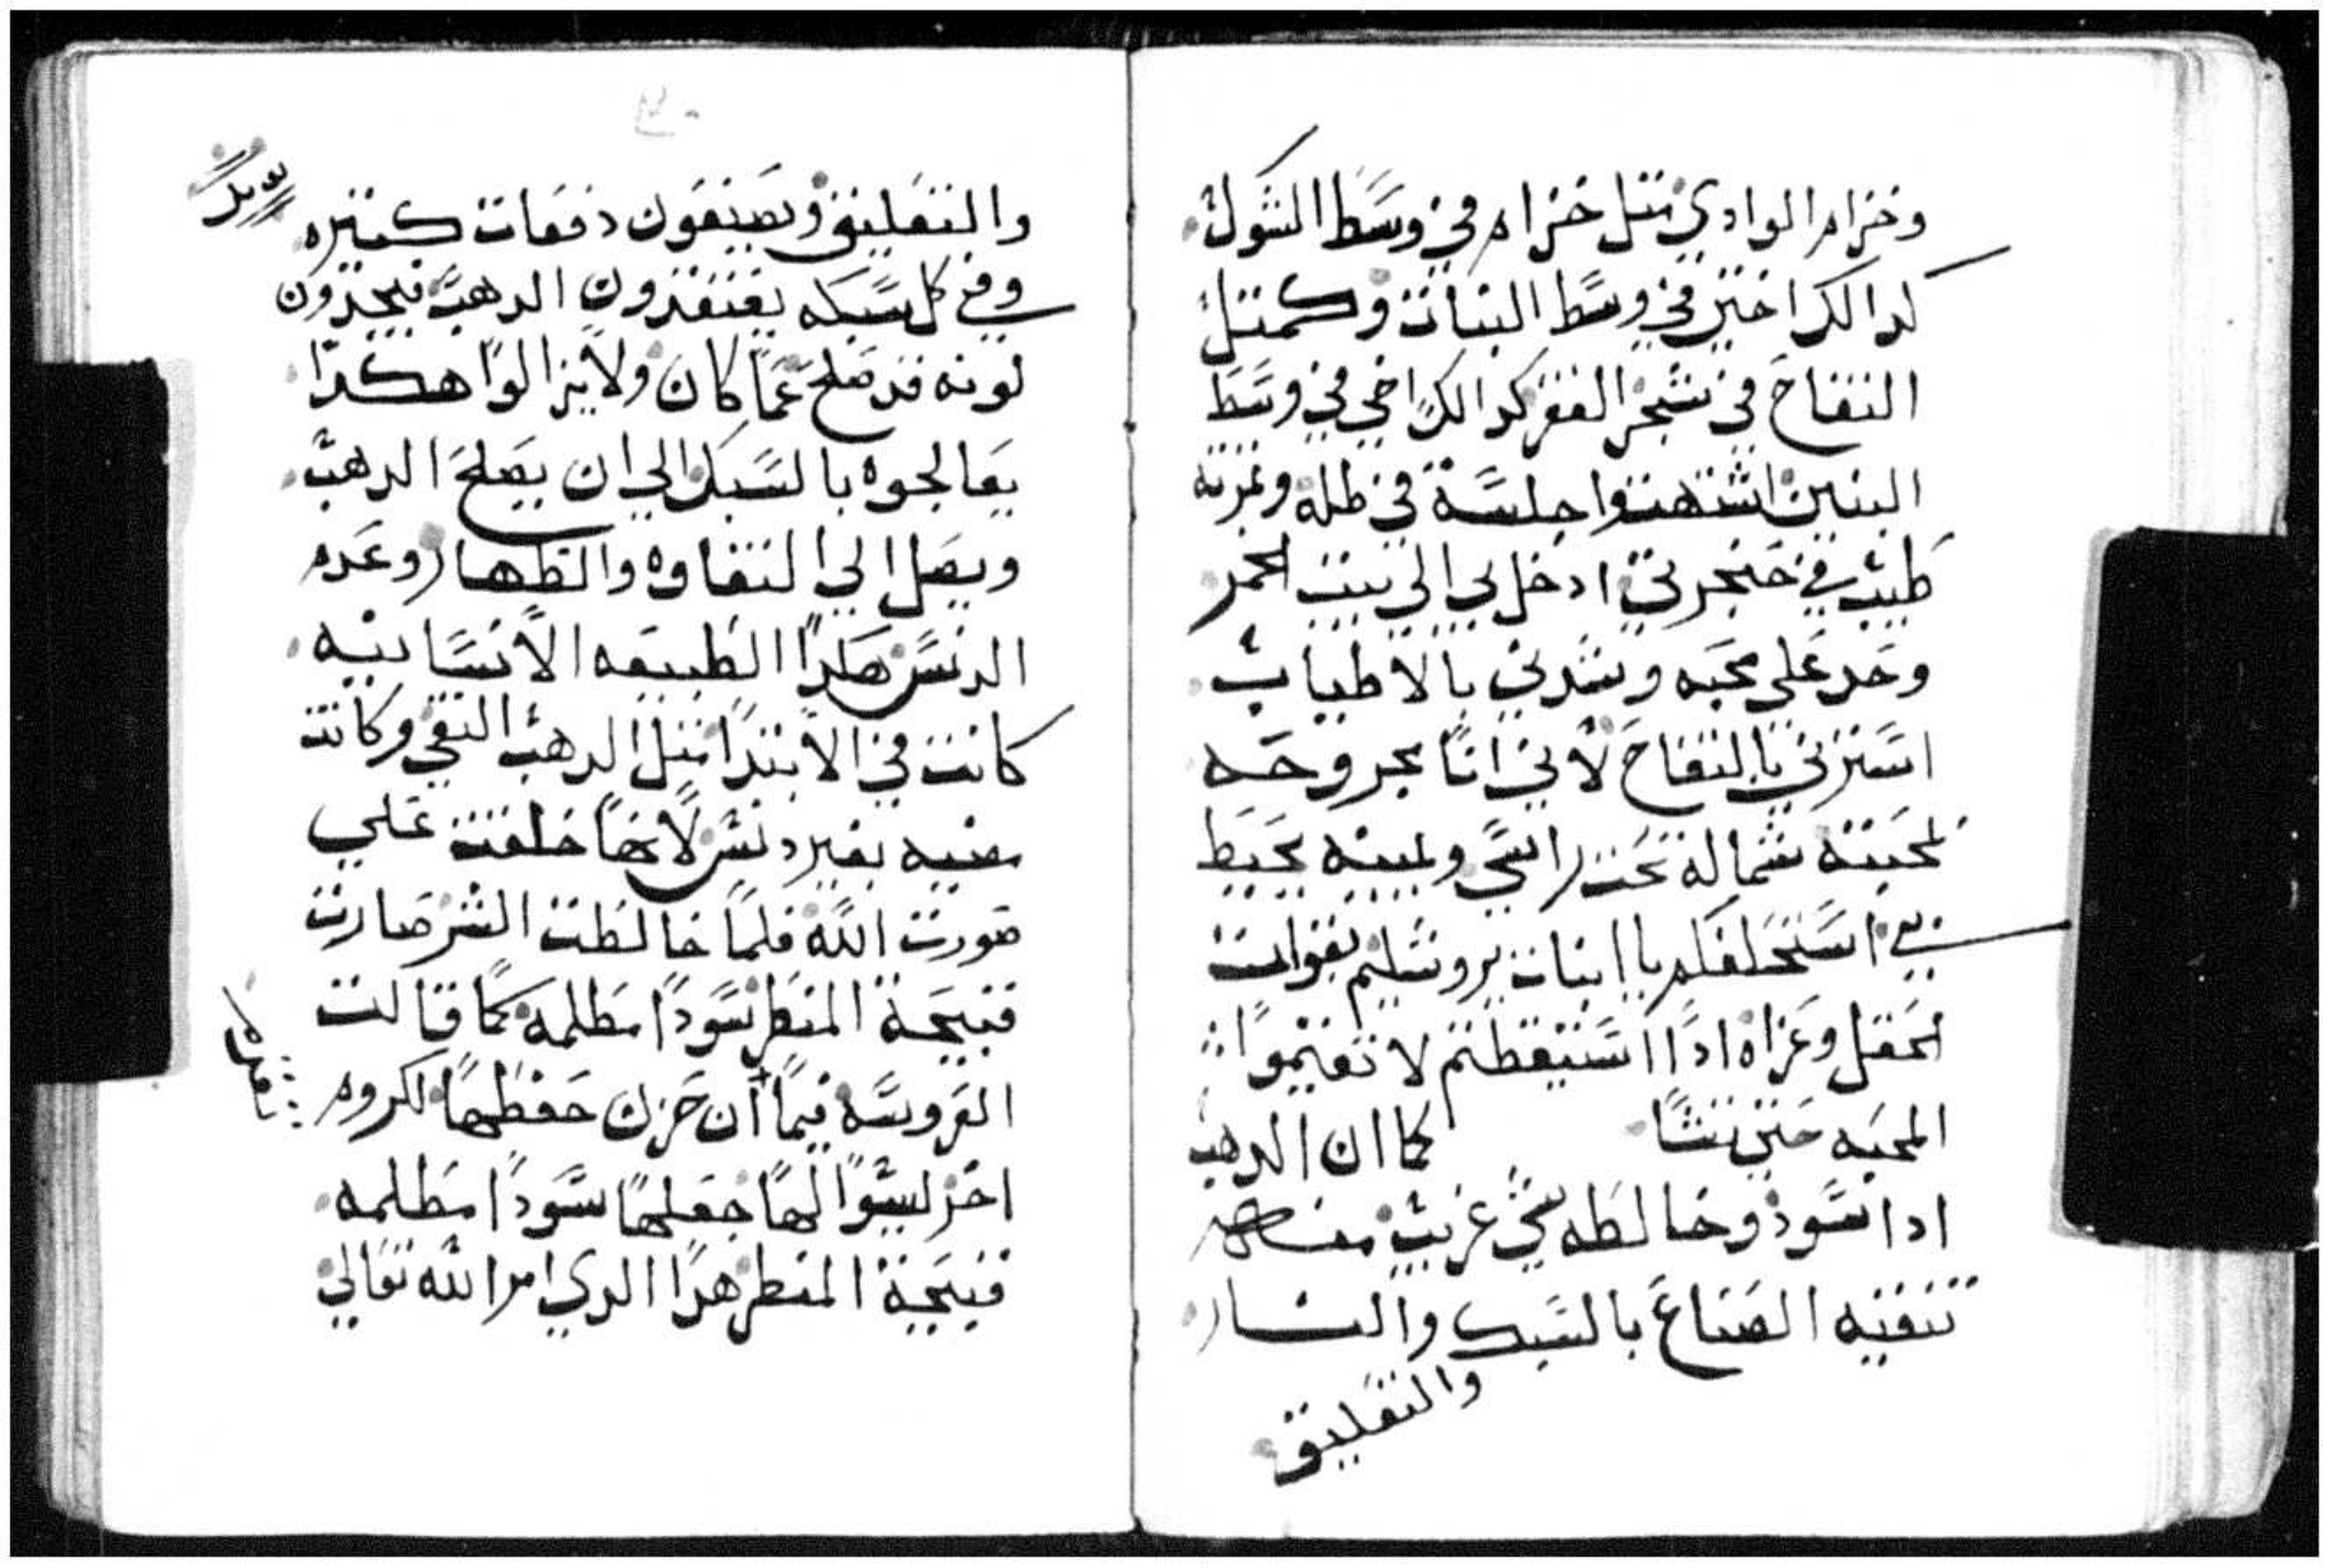 وخزام الوادي مثل خزام في وسط الشوك
كدالك اختي في وسط البنات وكمثل
التفاح في شجر القفر كدالك اخي في وسط
البنين اشتهيت جلسة في ظله وثمرته
طيب في حنجرتي ادخل بي الي بيت الخمر
وخد علي محبه وشدني بالاطياب
استرني بالتفاح لاني انا مجروحه
لمحبته شماله تحت راسي ويمينه تحيط
بي استحلفكم يا ابنات يروشليم بقوات
الحقل وعزاه ادا استيقظتم لا تقيموا
المحبه حتي تشا كما ان الدهب
ادا اسود وخالطه شي غريب
تنقيه الصناع بالسبك والنار
والتعليق
والتعليق ويصيفون دفعات كثيره
وفي كل سبكه يفتقدون الدهب فيجدون
لونه قد صلح عما كان ولا يزالوا هكدا
يعالجوه بالسبك الي ان يصلح الدهب
ويصل الي النقاوه والطهاره وعدم
الدنس هكدا الطبيعه الانسانيه
كانت في الابتدا مثل الدهب النقي وكانت
مضيه بغير دنس لانها خلقت علي
صورت الله فلما خالطت الشر صارت
قبيحة المنظر سودا مظلمه كما قالت
العروسه فيما ان حزن حفظها لكروم
اخر ليسوا لها جعلها سودا مظلمه
قبيحة المنظر هدا الدي امر الله تعالي